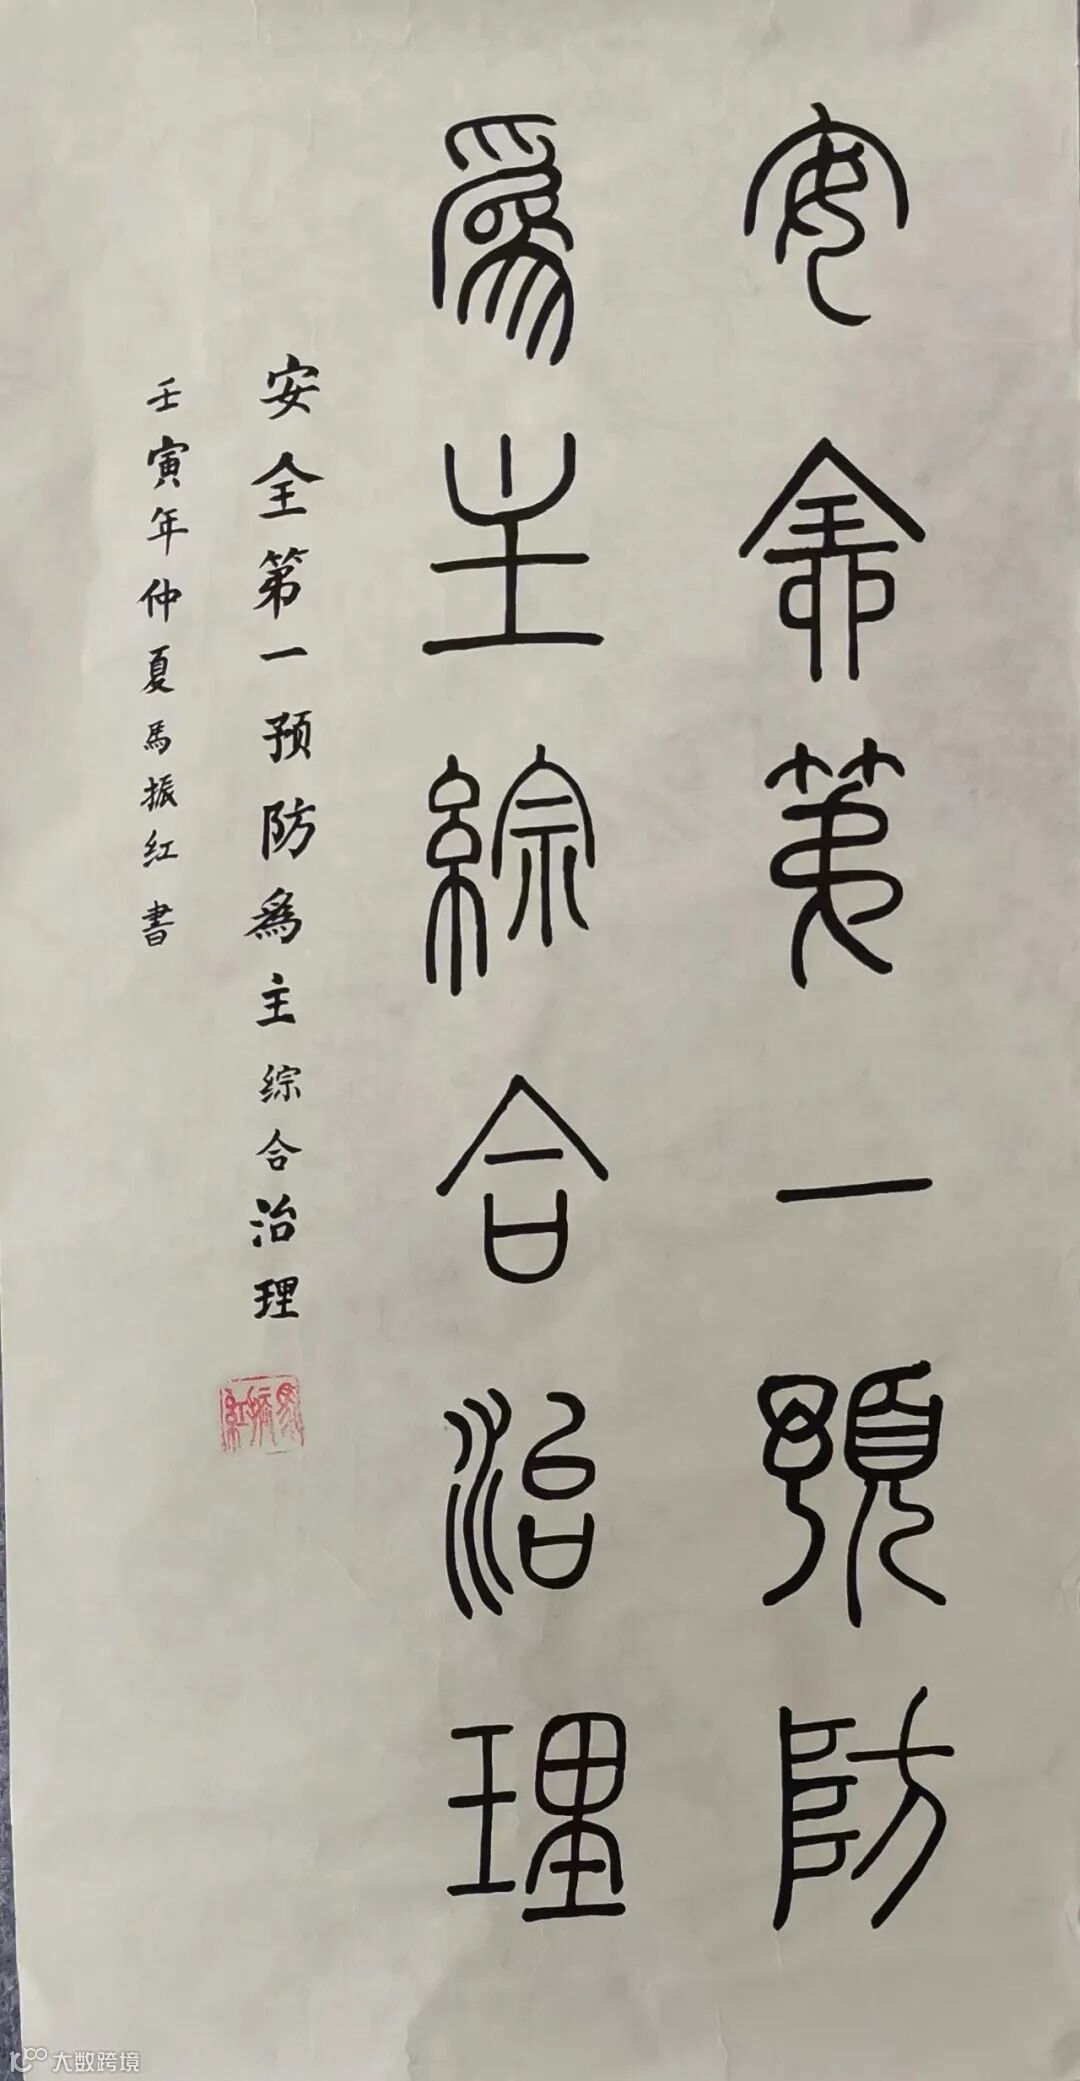 安全第一預防
爲主綜合治理
安全第一预防爲主综合治理
壬寅年仲夏馬振红書
馬振紅
大数跨境